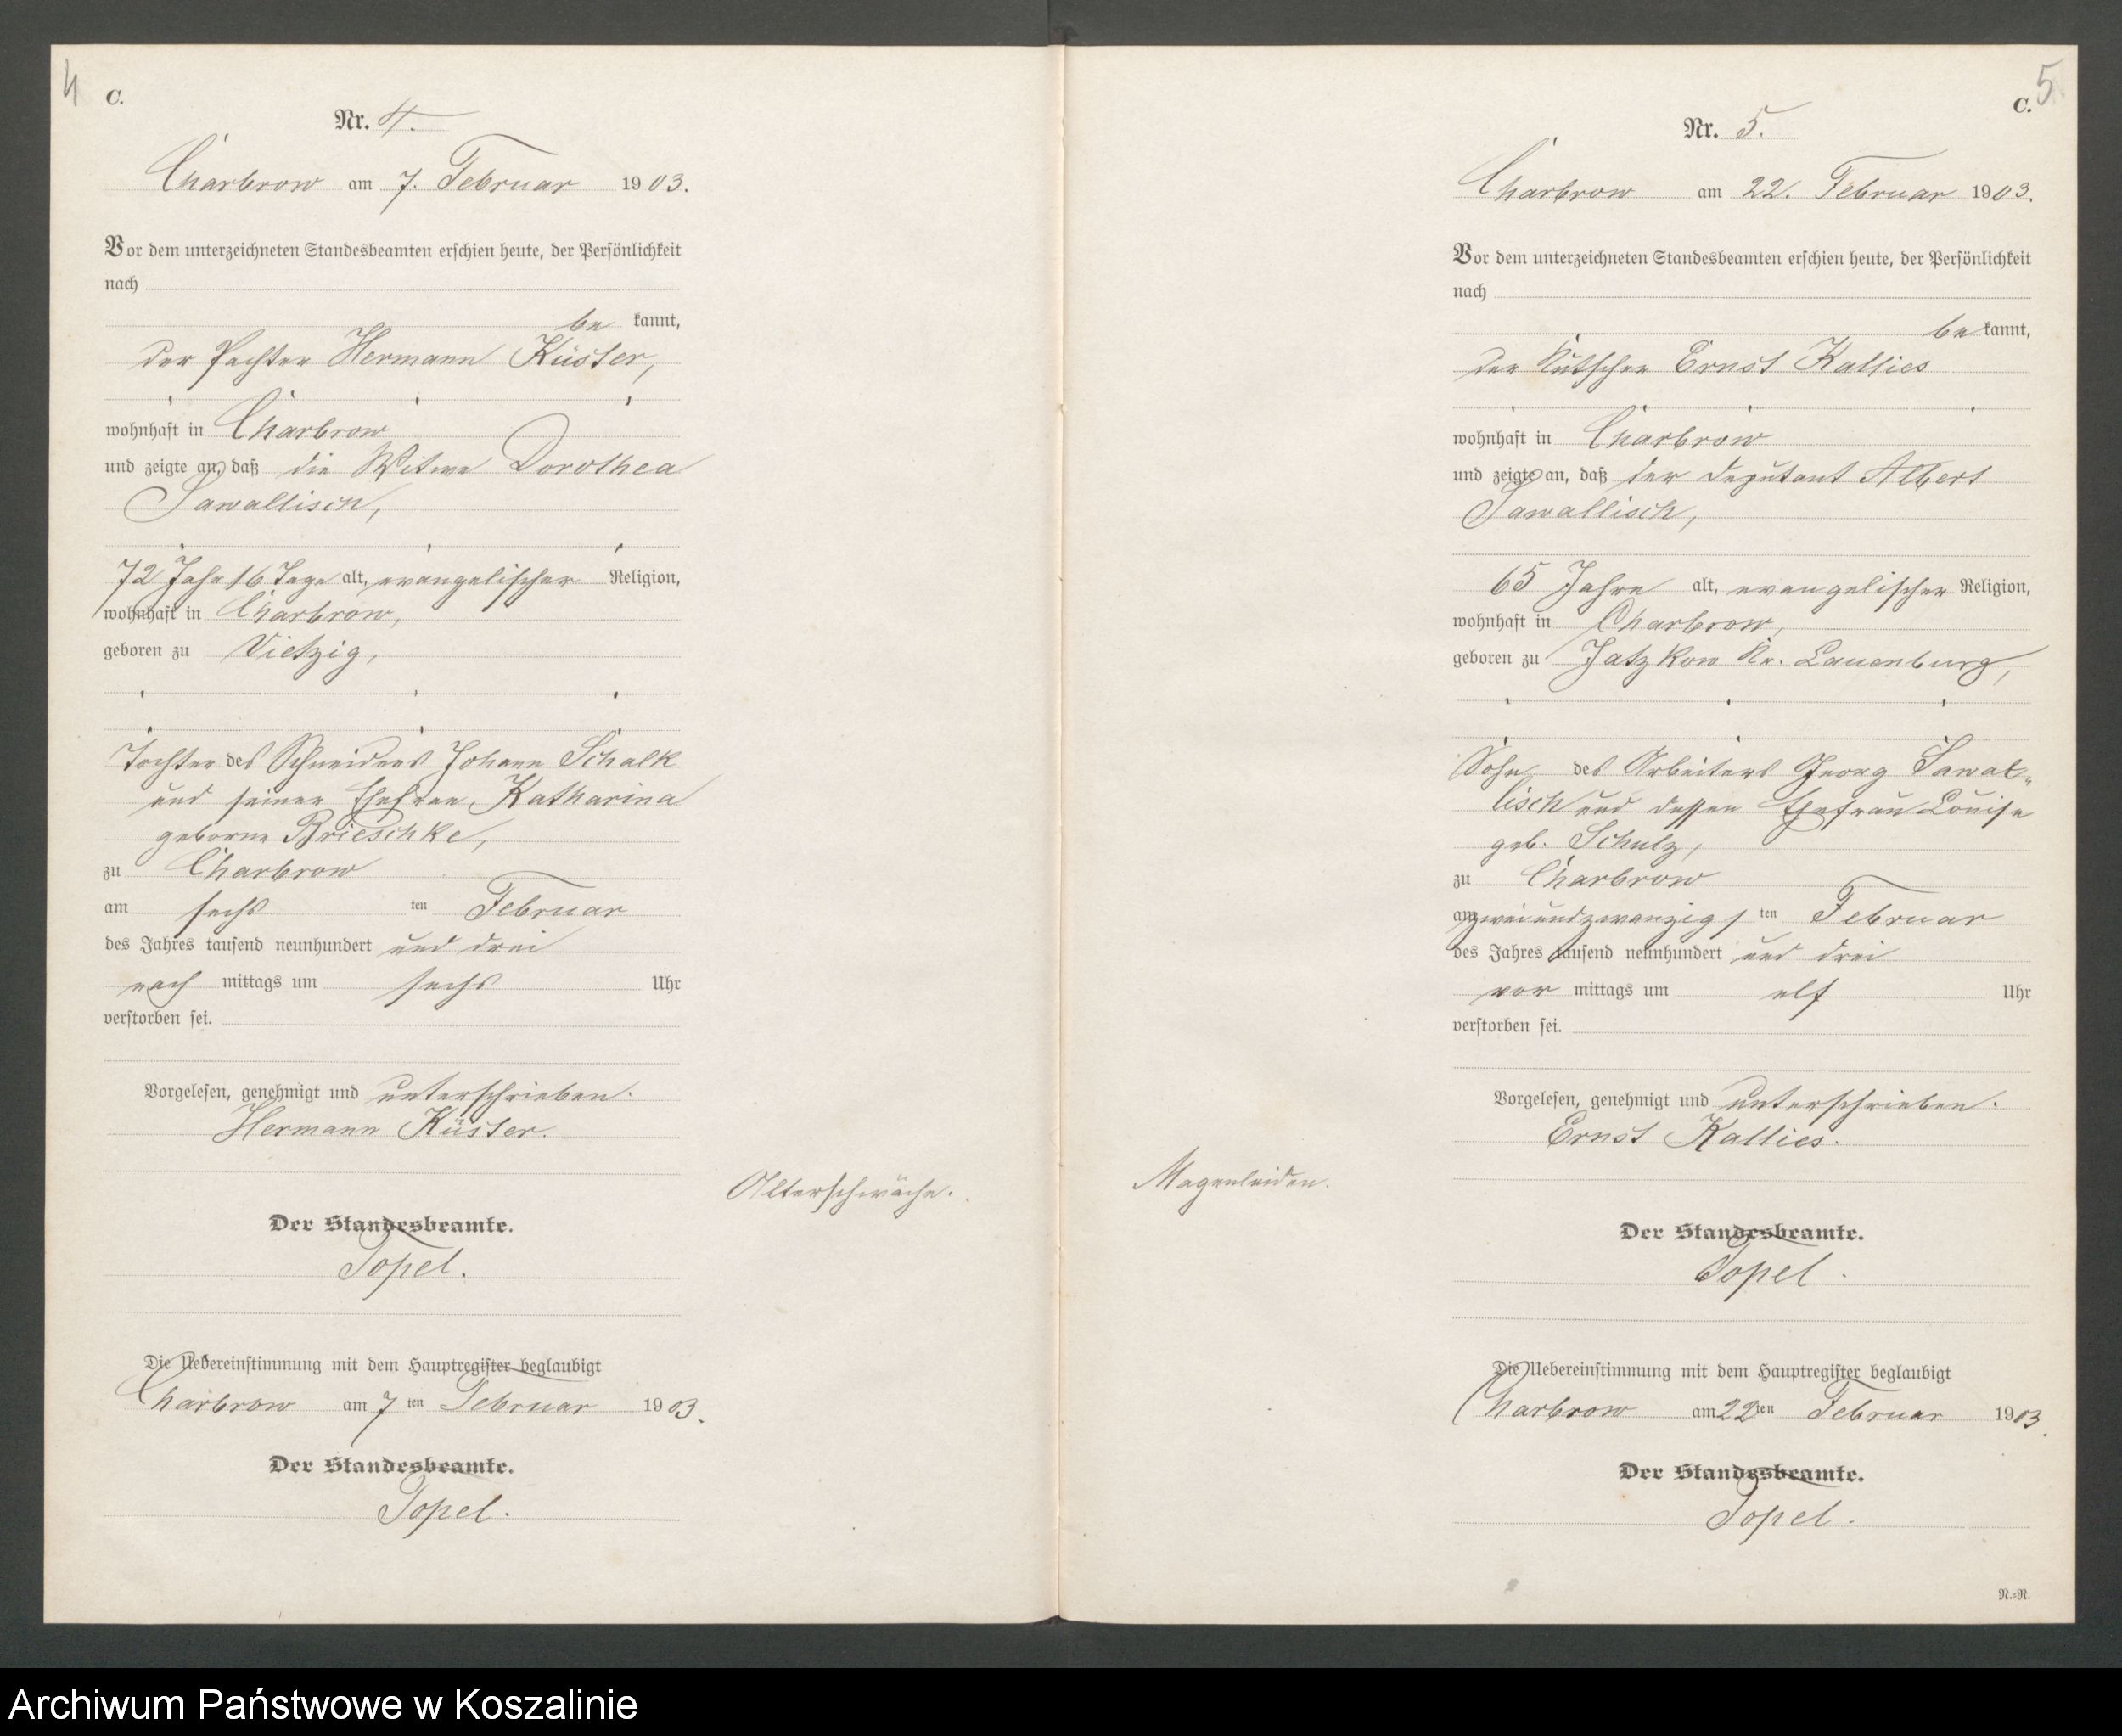 4
C.
Nr. 4.
Charbrow am 7. Februar 1903.
Vor dem unterzeichneten Standesbeamten erschien heute, der Persönlichkeit
nach
be kannt,
der Pächter Hermann Küster,
wohnhaft in Charbrow
und zeigte an, daß die Witwe Dorothea
Sawallisch,
72 Jahr 16 Tage alt, evangelischer Religion,
wohnhaft in Charbrow,
geboren zu Vietzig,
Tochter des Schneiders Johann Schalk
und seiner Ehefrau Katharina
geborne Brieschke,
zu Charbrow
am sechs ten Februar
des Jahres tausend neunhundert und drei
nach mittags um sechs Uhr
verstorben sei.
Vorgelesen, genehmigt und unterschrieben.
Hermann Küster.
Alterschwäche.
Der Standesbeamte.
Topel.
Die Uebereinstimmung mit dem Hauptregister beglaubigt
Charbrow am 7 ten Februar 1903.
Der Standesbeamte.
Topel.
5
C.
Nr. 5.
Charbrow am 22. Februar 1903.
Vor dem unterzeichneten Standesbeamten erschien heute, der Persönlichkeit
nach
be kannt,
der Kutscher Ernst Kallies
wohnhaft in Charbrow
und zeigte an, daß der Deputant Albert
Sawallisch,
65 Jahre alt, evangelischer Religion,
wohnhaft in Charbrow,
geboren zu Jatzkow Kr. Lauenburg,
Sohn des Arbeiters Georg Sawal-
lisch und dessen Ehefrau Louise
geb. Schulz,
zu Charbrow
am zweiundzwanzigs ten Februar
des Jahres tausend neunhundert und drei
vor mittags um elf Uhr
verstorben sei.
Vorgelesen, genehmigt und unterschrieben.
Ernst Kallies.
Magenleiden.
Der Standesbeamte.
Topel.
Die Uebereinstimmung mit dem Hauptregister beglaubigt
Charbrow am 22 ten Februar 1903.
Der Standesbeamte.
Topel.
N.=R.
Archiwum Państwowe w Koszalinie